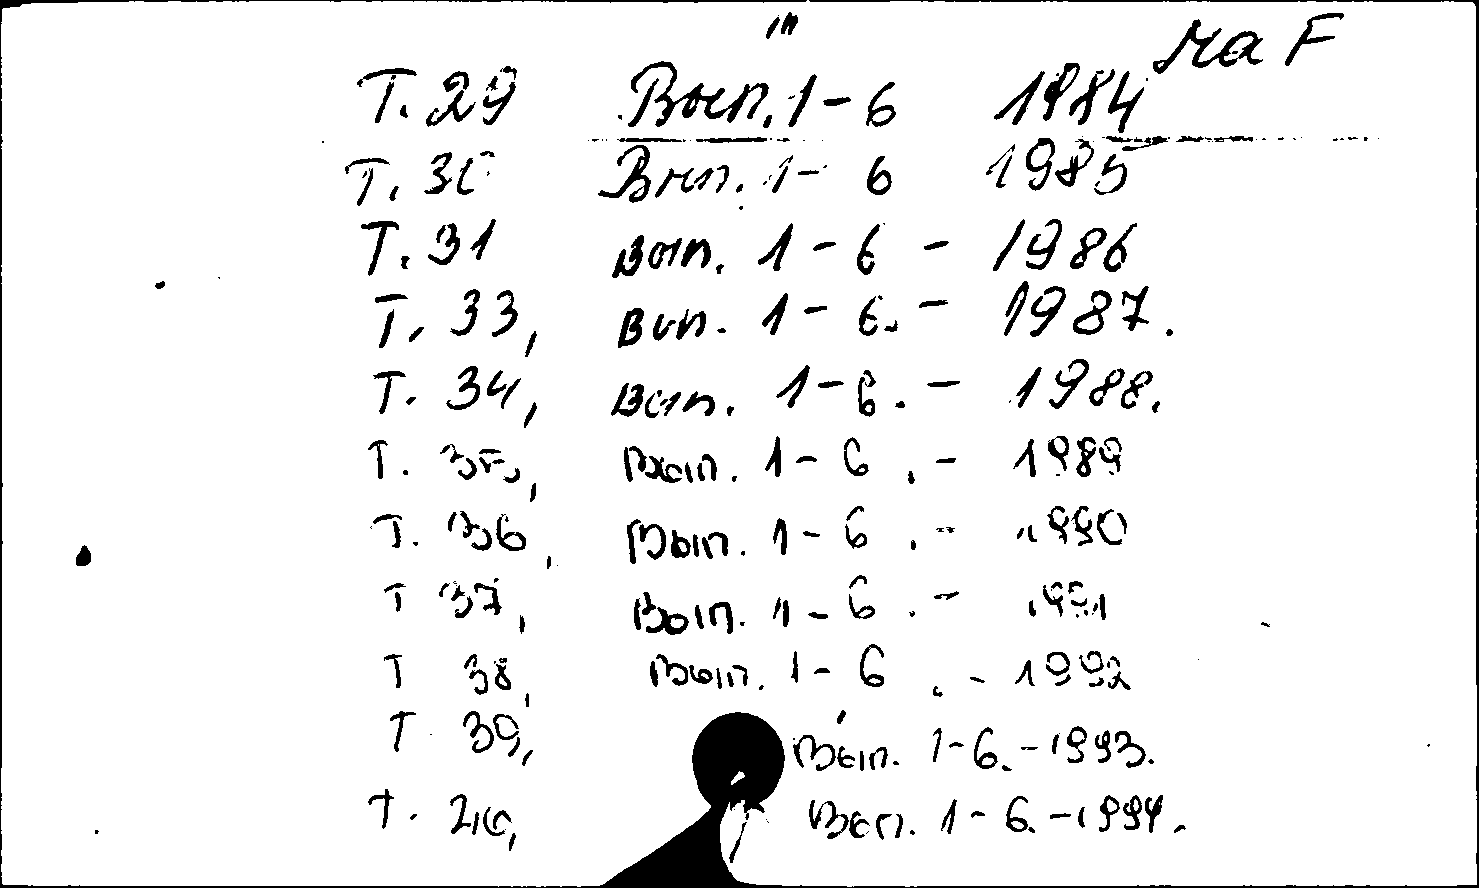 III
на F
Т. 29 Вып. 1-6 1984
Т. 30 Вып. 1- 6 1985
Т. 31 Вып. 1-6 - 1986
Т. 33, Вып. 1-6. - 1987.
Т. 34, Вып. 1-6. - 1988.
Т. 35, Вып. 1-6. - 1989
Т. 36, Вып. 1-6. - 1990
Т 37, Вып. 1-6. - 1991
Т 38, Вып. 1-6. - 1992
Т 39, Вып. 1-6. - 1993.
Т. 40, Вып. 1-6. - 1994.